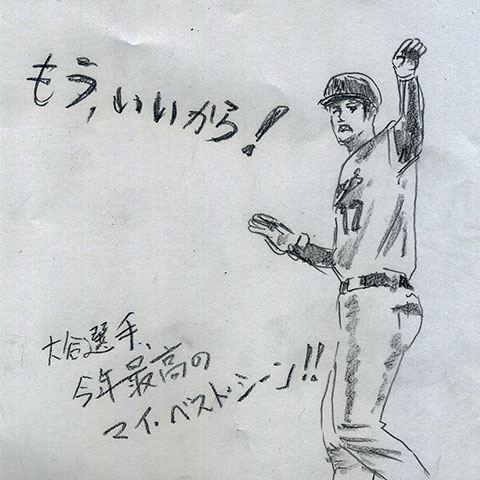 もう,いいから!
大谷選手、
今年最高の
マイ・ベスト・シーン!!
17